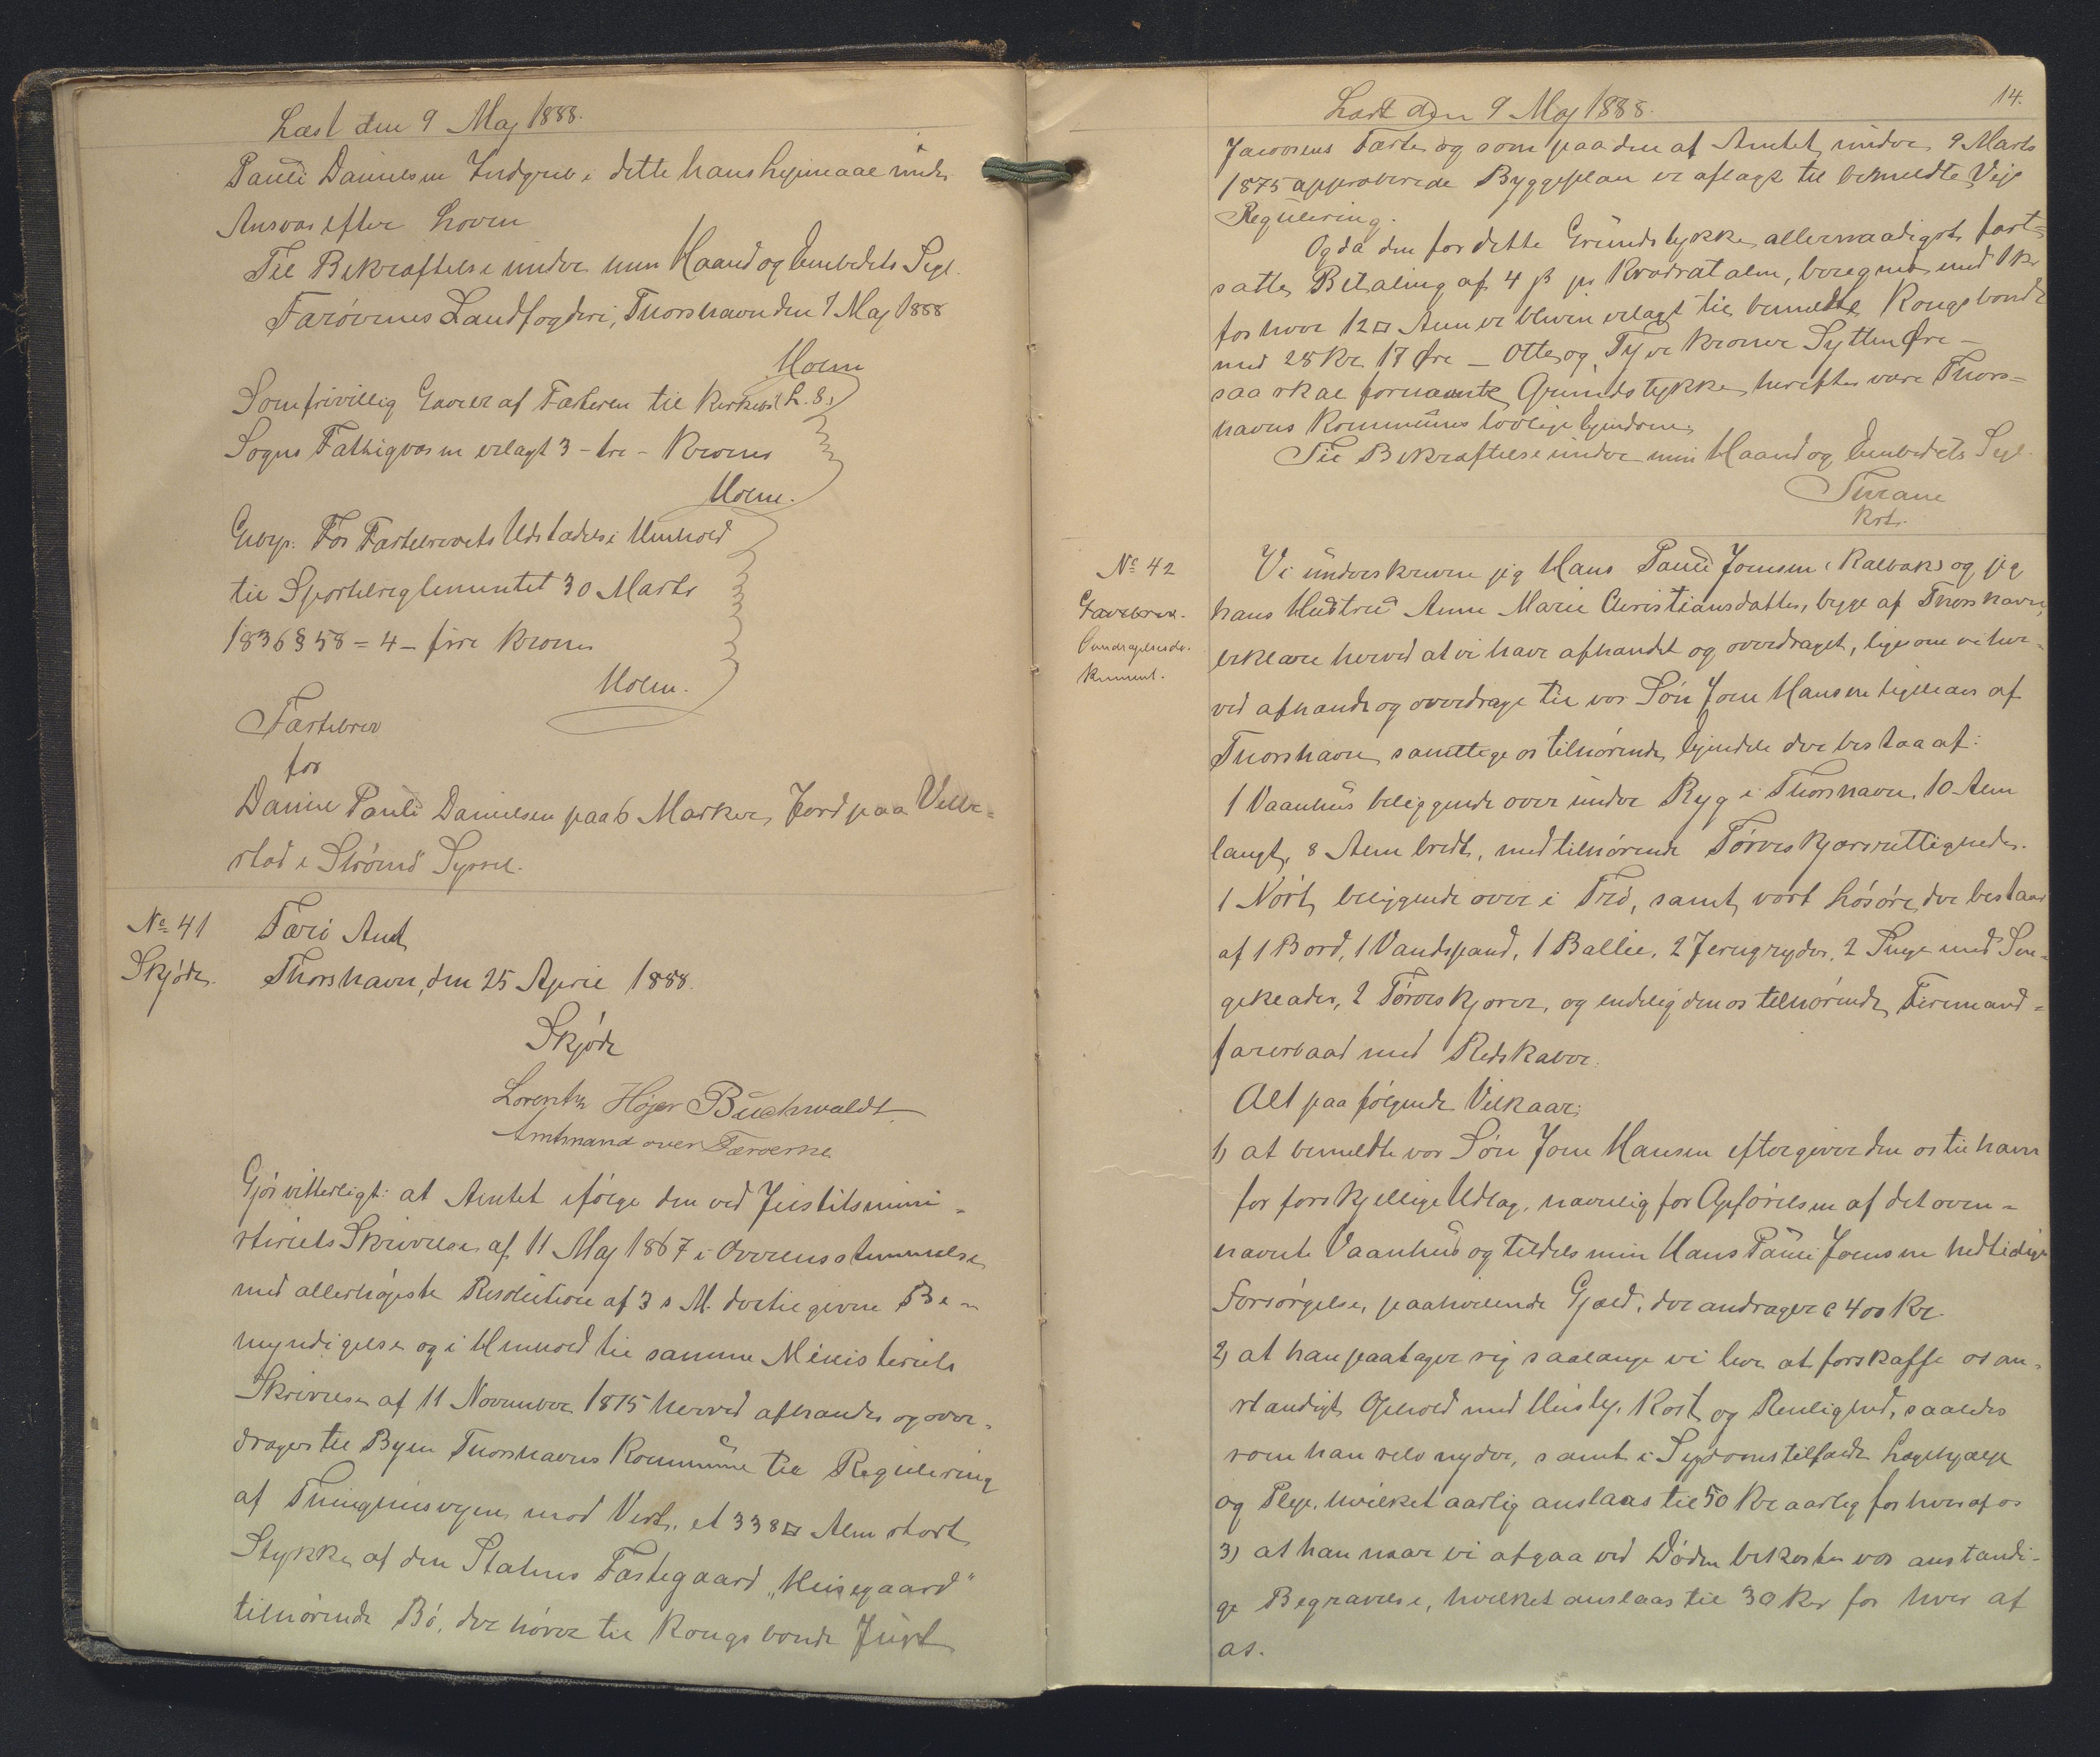 Læst den 9 Maj 1888.
Pauli Danielsen Indgreb i dette hans Lejemaal under
Ansvar efter Loven
Til Bekræftelse under min Haand og Embedets Segl.
Færøernes Landfogderi, Thorshavn den 7 Maj 1888
Holm
Som frivillig Gave er af Fæsteren til Kirkens (L. S.)
Sogns Fattigvæsen erlagt 3 - tre - Kroner
Holm.
Gebyr. For Fæstebrevets Udstædelse i Henhold
til Sportelreglementet 30 Marts
1836 § 58 = 4 - fire Kroner
Holm.
Fæstebrev
for
Daniel Pauli Danielsen paa 6 Marker Jord paa Velbe=
stad i Strømø Syssel.
No 41
Skjøde.
Færø Amt
Thorshavn, den 25 April 1888.
Skjøde
Lorentz Højer Buchwaldt
Amtmand over Færøerne
Gjør vitterligt: at Amtet ifølge den ved Justitsmini=
steriets Skrivelse af 11 Maj 1867 i Overensstemmelse
med allerhøjeste Resolution af 3 s. M. dertil givne Be=
myndigelse og i Henhold til samme Ministeriets
Skrivelse af 11 November 1875 herved afhænder og over=
drager til Byen Thorshavns Kommune til Regulering
af Thinghusvejen mod Vest, et 338 □ Alen stort
Stykke af den Statens Fæstegaard "Husegaard"
tilhørende Bø, der hører til Kongsbonde Just
14.
Læst den 9 Maj 1888.
Jacobsens Fæste og som paa den af Amtet under 9 Marts
1875 approberede Byggeplan er aflagt til bemeldte Vejs
Regulering.
Og da den for dette Grundstykke allernaadigst fast=
satte Betaling af 4 ß pr Kvadratalen, beregnet med 1 Kr
for hver 12 □ Alen er bleven erlagt til bemeldte Kongsbonde
med 28 Kr. 17 Øre - Otte og Tyve Kroner Sytten Øre -
saa skal fornævnte Grundstykke herefter være Thors=
havns Kommunes lovlige Ejendom.
Til Bekræftelse under min Haand og Embedets Segl.
Thrane
Kst.
No 42
Gavebrev.
Overdragelsesdo-
kument.
Vi underskrevne jeg Hans Pauli Joensen (Kalbak) og jeg
hans Hustrue Anne Marie Christiansdatter, begge af Thorshavn,
erklære herved at vi have afhændet og overdraget, ligesom vi her=
ved afhænde og overdrage til vor Søn Joen Hansen ligeledes af
Thorshavn samtlige os tilhørende Ejendele der bestaa af:
1 Vaanhus beliggende over under Ryg i Thorshavn, 10 Alen
langt, 8 Alen bredt, med tilhørende Tørveskjærsrettigheder.
1 Nøst, beliggende over i Trø, samt vort Løsøre, der bestaar
af 1 Bord, 1 Vandspand, 1 Ballie, 2 Jerngryder, 2 Senge med Sen=
geklæder, 2 Tørveskjærer, og endelig den os tilhørende Firemand=
farerbaad med Redskaber.
Alt paa følgende Vilkaar:
1) at bemeldte vor Søn Joen Hansen eftergiver den os til ham
for forskjellige Udlæg, navnlig for Opførelsen af det oven=
nævnte Vaanhus og tildels min Hans Pauli Joensens hidtidige
Forsørgelse, paahvilende Gjæld, der andrager c 400 Kr.
2) at han paatager sig saalænge vi leve at forskaffe os an=
stændigt Ophold med Husly, Kost og Renlighed, saaledes
som han selv nyder, samt i Sygdomstilfælde Lægehjælp
og Pleje, hvilket aarlig anslaas til 50 Kr aarlig for hver af os
3) at han naar vi afgaa ved Døden bekoster vor anstændi=
ge Begravelse, hvilket anslaas til 30 Kr for hver af
os.